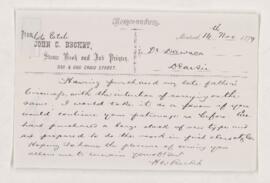 Memorandum.
From late Estab
JOHN C. BECKET,
Steam Book and Job Printer,
Montreal, 14th Nov 1879
Dr Dawson
Dear Sir
Having purchased my late father's
business, with the intention of carrying on the
same. I would take it as a favor if you
would continue your patronage as before. We
have purchased a large stock of new type and
are prepared to do the work in first class style.
Hoping to have the pleasure of serving you
allow me to remain yours &c